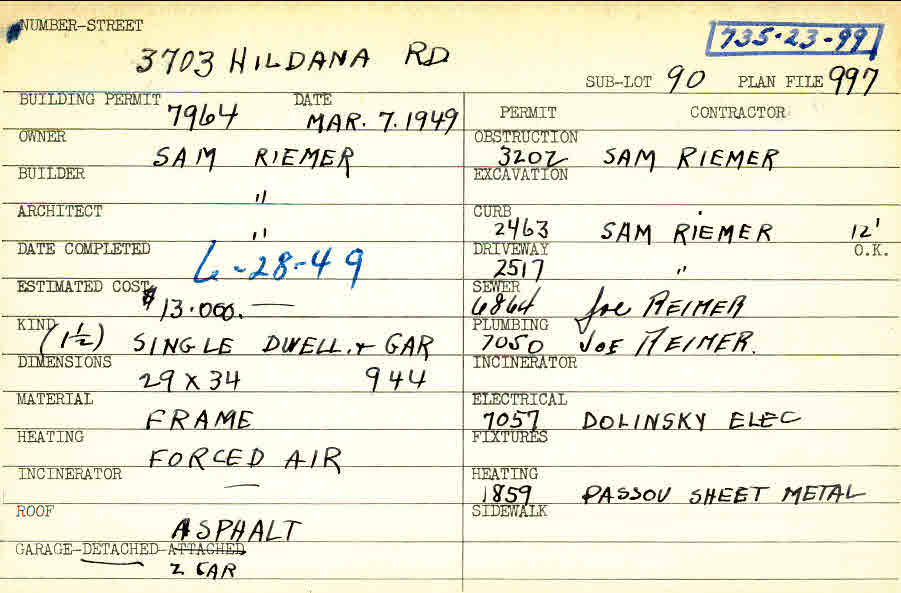 NUMBER-STREET
3703 HILDANA RD
735-23-99
SUB-LOT 90 PLAN FILE 997
BUILDING PERMIT 7964 DATE MAR. 7. 1949
OWNER SAM RIEMER
BUILDER "
ARCHITECT "
DATE COMPLETED 6-28-49
ESTIMATED COST $13.000.—
KIND (1½) SINGLE DWELL. + GAR
DIMENSIONS 29 X 34 944
MATERIAL FRAME
HEATING FORCED AIR
INCINERATOR —
ROOF ASPHALT
GARAGE-DETACHED-ATTACHED
2 CAR
PERMIT CONTRACTOR
OBSTRUCTION
3202 SAM RIEMER
EXCAVATION
CURB
2463 SAM RIEMER 12'
DRIVEWAY O.K.
2517 "
SEWER
6864 Joe REIMER
PLUMBING
7050 JOE REIMER.
INCINERATOR
ELECTRICAL
7057 DOLINSKY ELEC
FIXTURES
HEATING
1859 PASSOV SHEET METAL
SIDEWALK